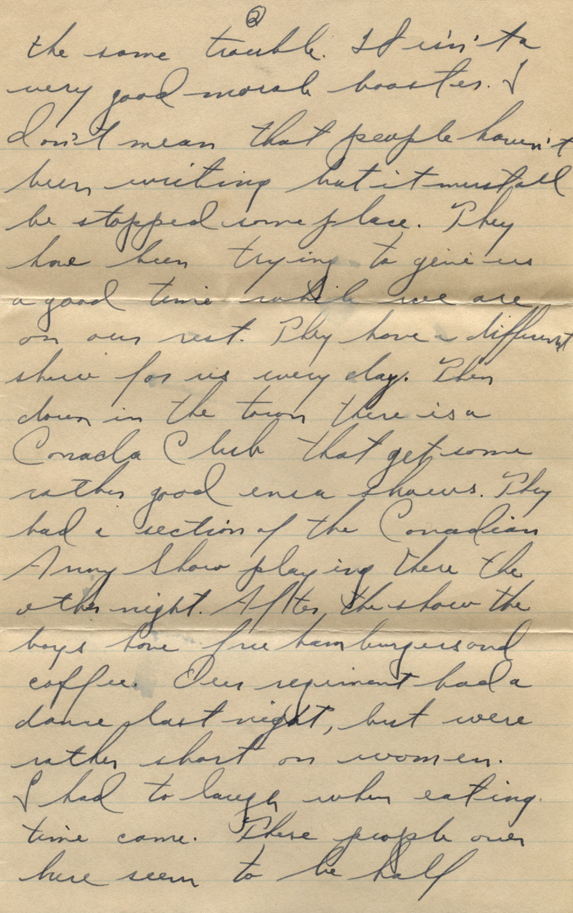 ②
the same trouble. It isn't a
very good morale booster. I
don't mean that people haven't
been writing but it must all
be stopped some place. They
have been trying to give us
a good time while we are
on our rest. They have a different
show for us every day. Then
down in the town there is a
Canada Club that get some
rather good ensa shows. They
had a section of the Canadian
Army Show playing there the
other night. After the show the
boys have free hamburgers and
coffee. Our regiment had a
dance last night, but were
rather short on women.
I had to laugh when eating
time came. These people over
here seem to be half